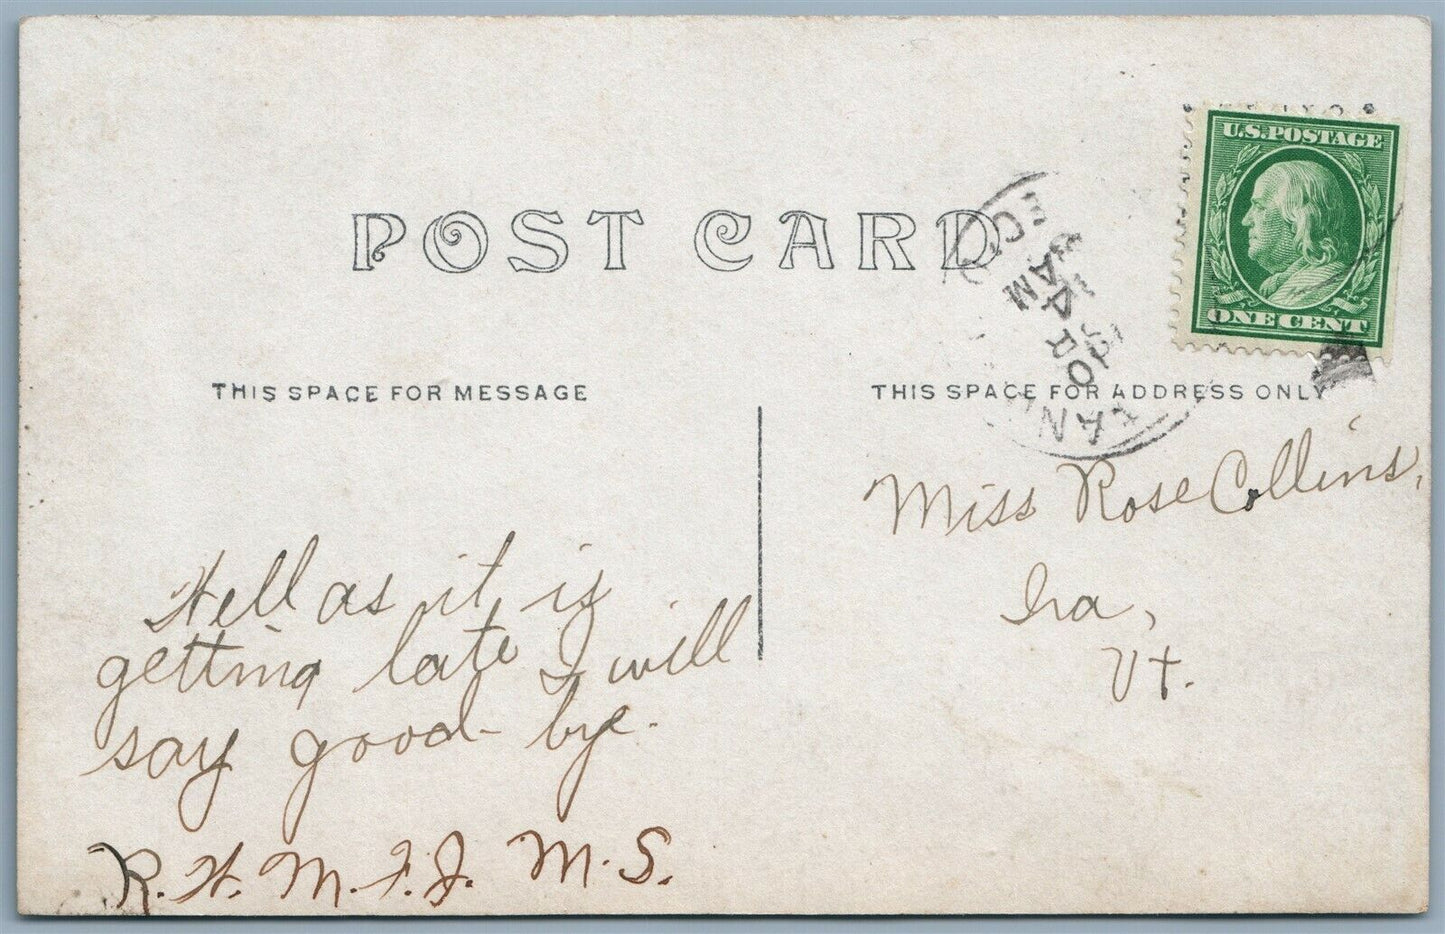 POST CARD
U.S. POSTAGE
ONE CENT
THIS SPACE FOR MESSAGE
THIS SPACE FOR ADDRESS ONLY
AM
Well as it is
getting late I will
say good-bye.
R. H. M. F. J. M. S.
Miss Rose Collins,
Ira,
Vt.